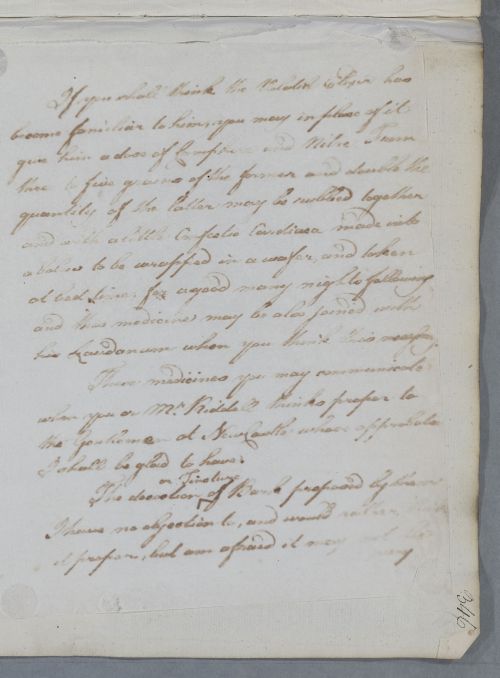 If you shall think the Vitriol Elixir has
become familiar to him, you may in place of it
give him a dose of Camphire and Nitre. From
three to five grains of the former and double the
quantity of the latter may be rubbed together
and with a little Confectio Cardiaca made into
a bolus to be wrapped in a wafer, and taken
at bed time for a good many nights following
and this medicine may be also joined with
his Laudanum when you think this necessary.
These medicines you may communicate
when you or Mr Riddell thinks proper to
the Gentlemen at New Castle whose approbation
I shall be glad to have.
or Tincture
The decoction of Bark proposed by them
I have no objection to, and would rather think
it proper, but am afraid it may not
very
346